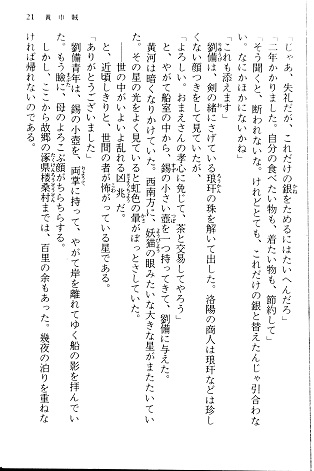 21　黄巾賊
「じゃあ、失礼だが、これだけの銀をためるにはたいへんだろ」
「二年かかりました。自分の食べたい物も、着たい物も、節約して」
「そう聞くと、断われないな。けれどとても、これだけの銀と替えたんじゃ引合わな
い。なにかほかにないかね」
「これも添えます」
劉備は、剣の緒にさげている琅玕の珠を解いて出した。洛陽の商人は琅玕などは珍し
くない顔つきをして見ていたが、
「よろしい。おまえさんの孝心に免じて、茶と交易してやろう」
と、やがて船室の中から、錫の小さい壺を一つ持ってきて、劉備に与えた。
黄河は暗くなりかけていた。西南方に、妖猫の眼みたいな大きな星がまたたいてい
た。その星の光をよく見ていると虹色の暈がぼっとさしていた。
――世の中がいよいよ乱れる凶兆だ。
と、近頃しきりと、世間の者が怖がっている星である。
「ありがとうございました」
劉備青年は、錫の小壺を、両掌に持って、やがて岸を離れてゆく船の影を拝んでい
た。もう瞼に、母のよろこぶ顔がちらちらする。
しかし、ここから故郷の涿県楼桑村までは、百里の余もあった。幾夜の泊りを重ねな
ければ帰れないのである。